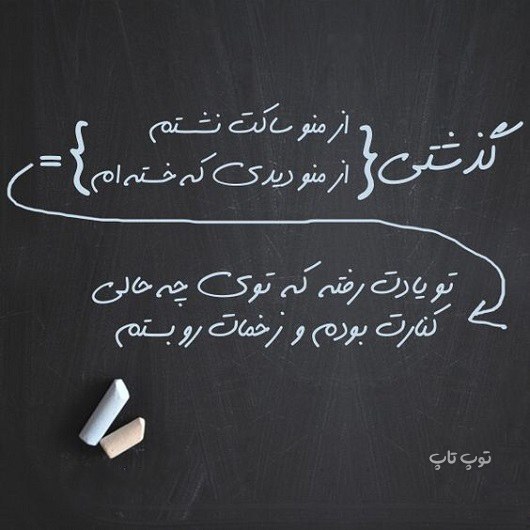 گذشتی { از منو ساکت نشستم
از منو دیدی که خسته ام } =
تو یادت رفته که توی چه حالی
کنارت بودم و زخمات رو بستم
توپ تاپ